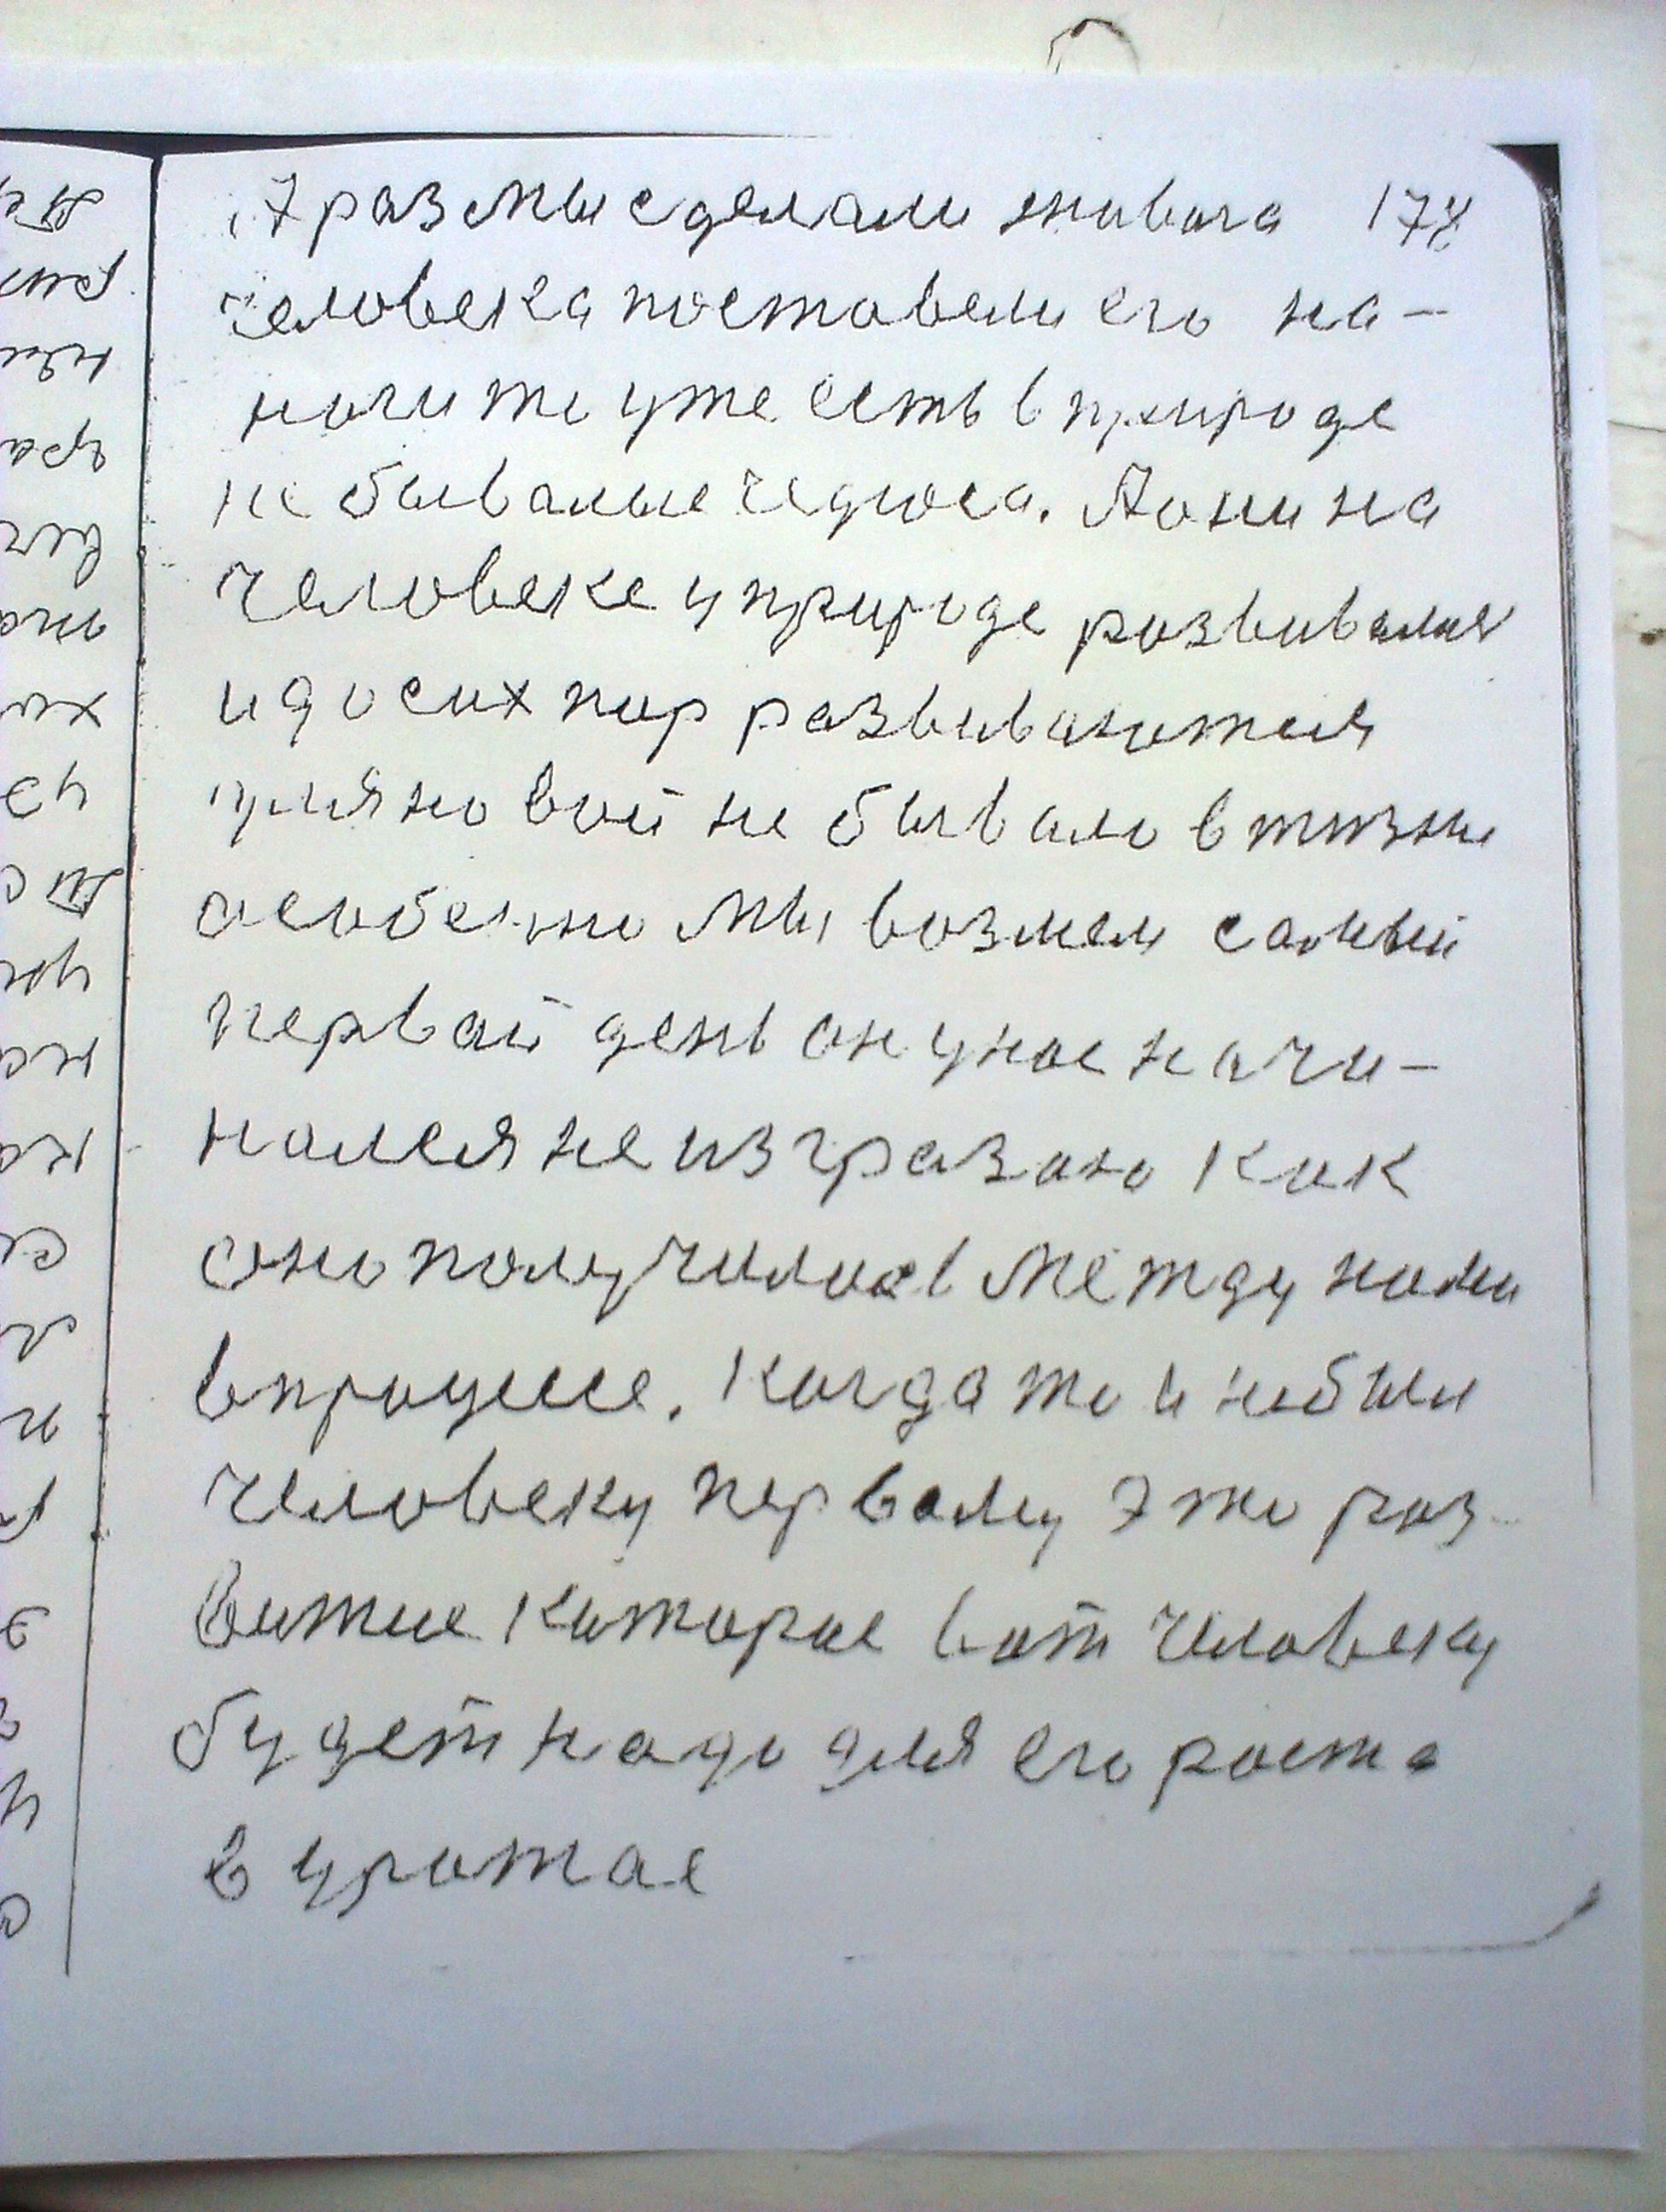 раз мы сделали живога 178
человека поставели его на-
ноги то уже есть в природе
не бывалые чудюса. Аони на
человеке у природе розвивались
и до сих пор развиваются
для новой не бывало в жизни
особенно мы возмем самый
первай день он у нас начи-
нался не из грязою как
оно получилось между нами
в процессе. Когда то и небыло
человеку первому это роз-
витие каторае вот человеку
будет надо для его роста
в урожае